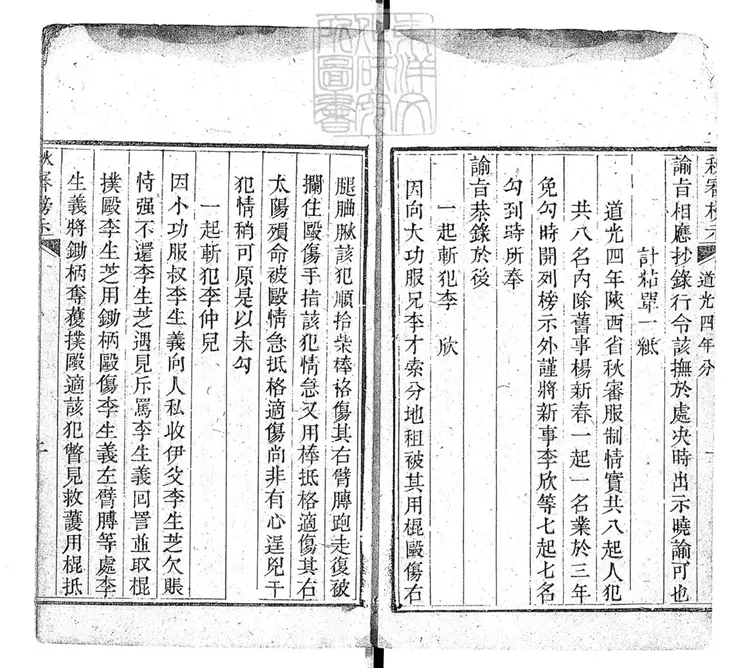 秋審榜示 道光四年分 一
諭旨相應抄錄行令該撫於處決時出示曉諭可也
計粘單一紙
道光四年陝西省秋審服制情實共八起人犯
共八名內除舊事楊新春一起一名業於三年
免勾時開列榜示外謹將新事李欣等七起七名
勾到時所奉
諭旨恭錄於後
一起斬犯李 欣
因向大功服兄李才索分地租被其用棍毆傷右
腿該犯順拾柴棒格傷其右臂膊跑走復被
攔住毆傷手指該犯情急又用棒抵格適傷其右
太陽殞命被毆情急抵格適傷尚非有心逞兇干
犯情稍可原是以未勾
一起斬犯李仲兒
因小功服叔李生義向人私收伊父李生芝欠賬
恃强不還李生芝遇見斥罵李生義回詈並取棍
撲毆李生芝用鋤柄毆傷李生義左臂膊等處李
生義將鋤柄奪獲撲毆適該犯瞥見救護用棍抵
秋審榜示 二
東洋文
化研究
所圖書